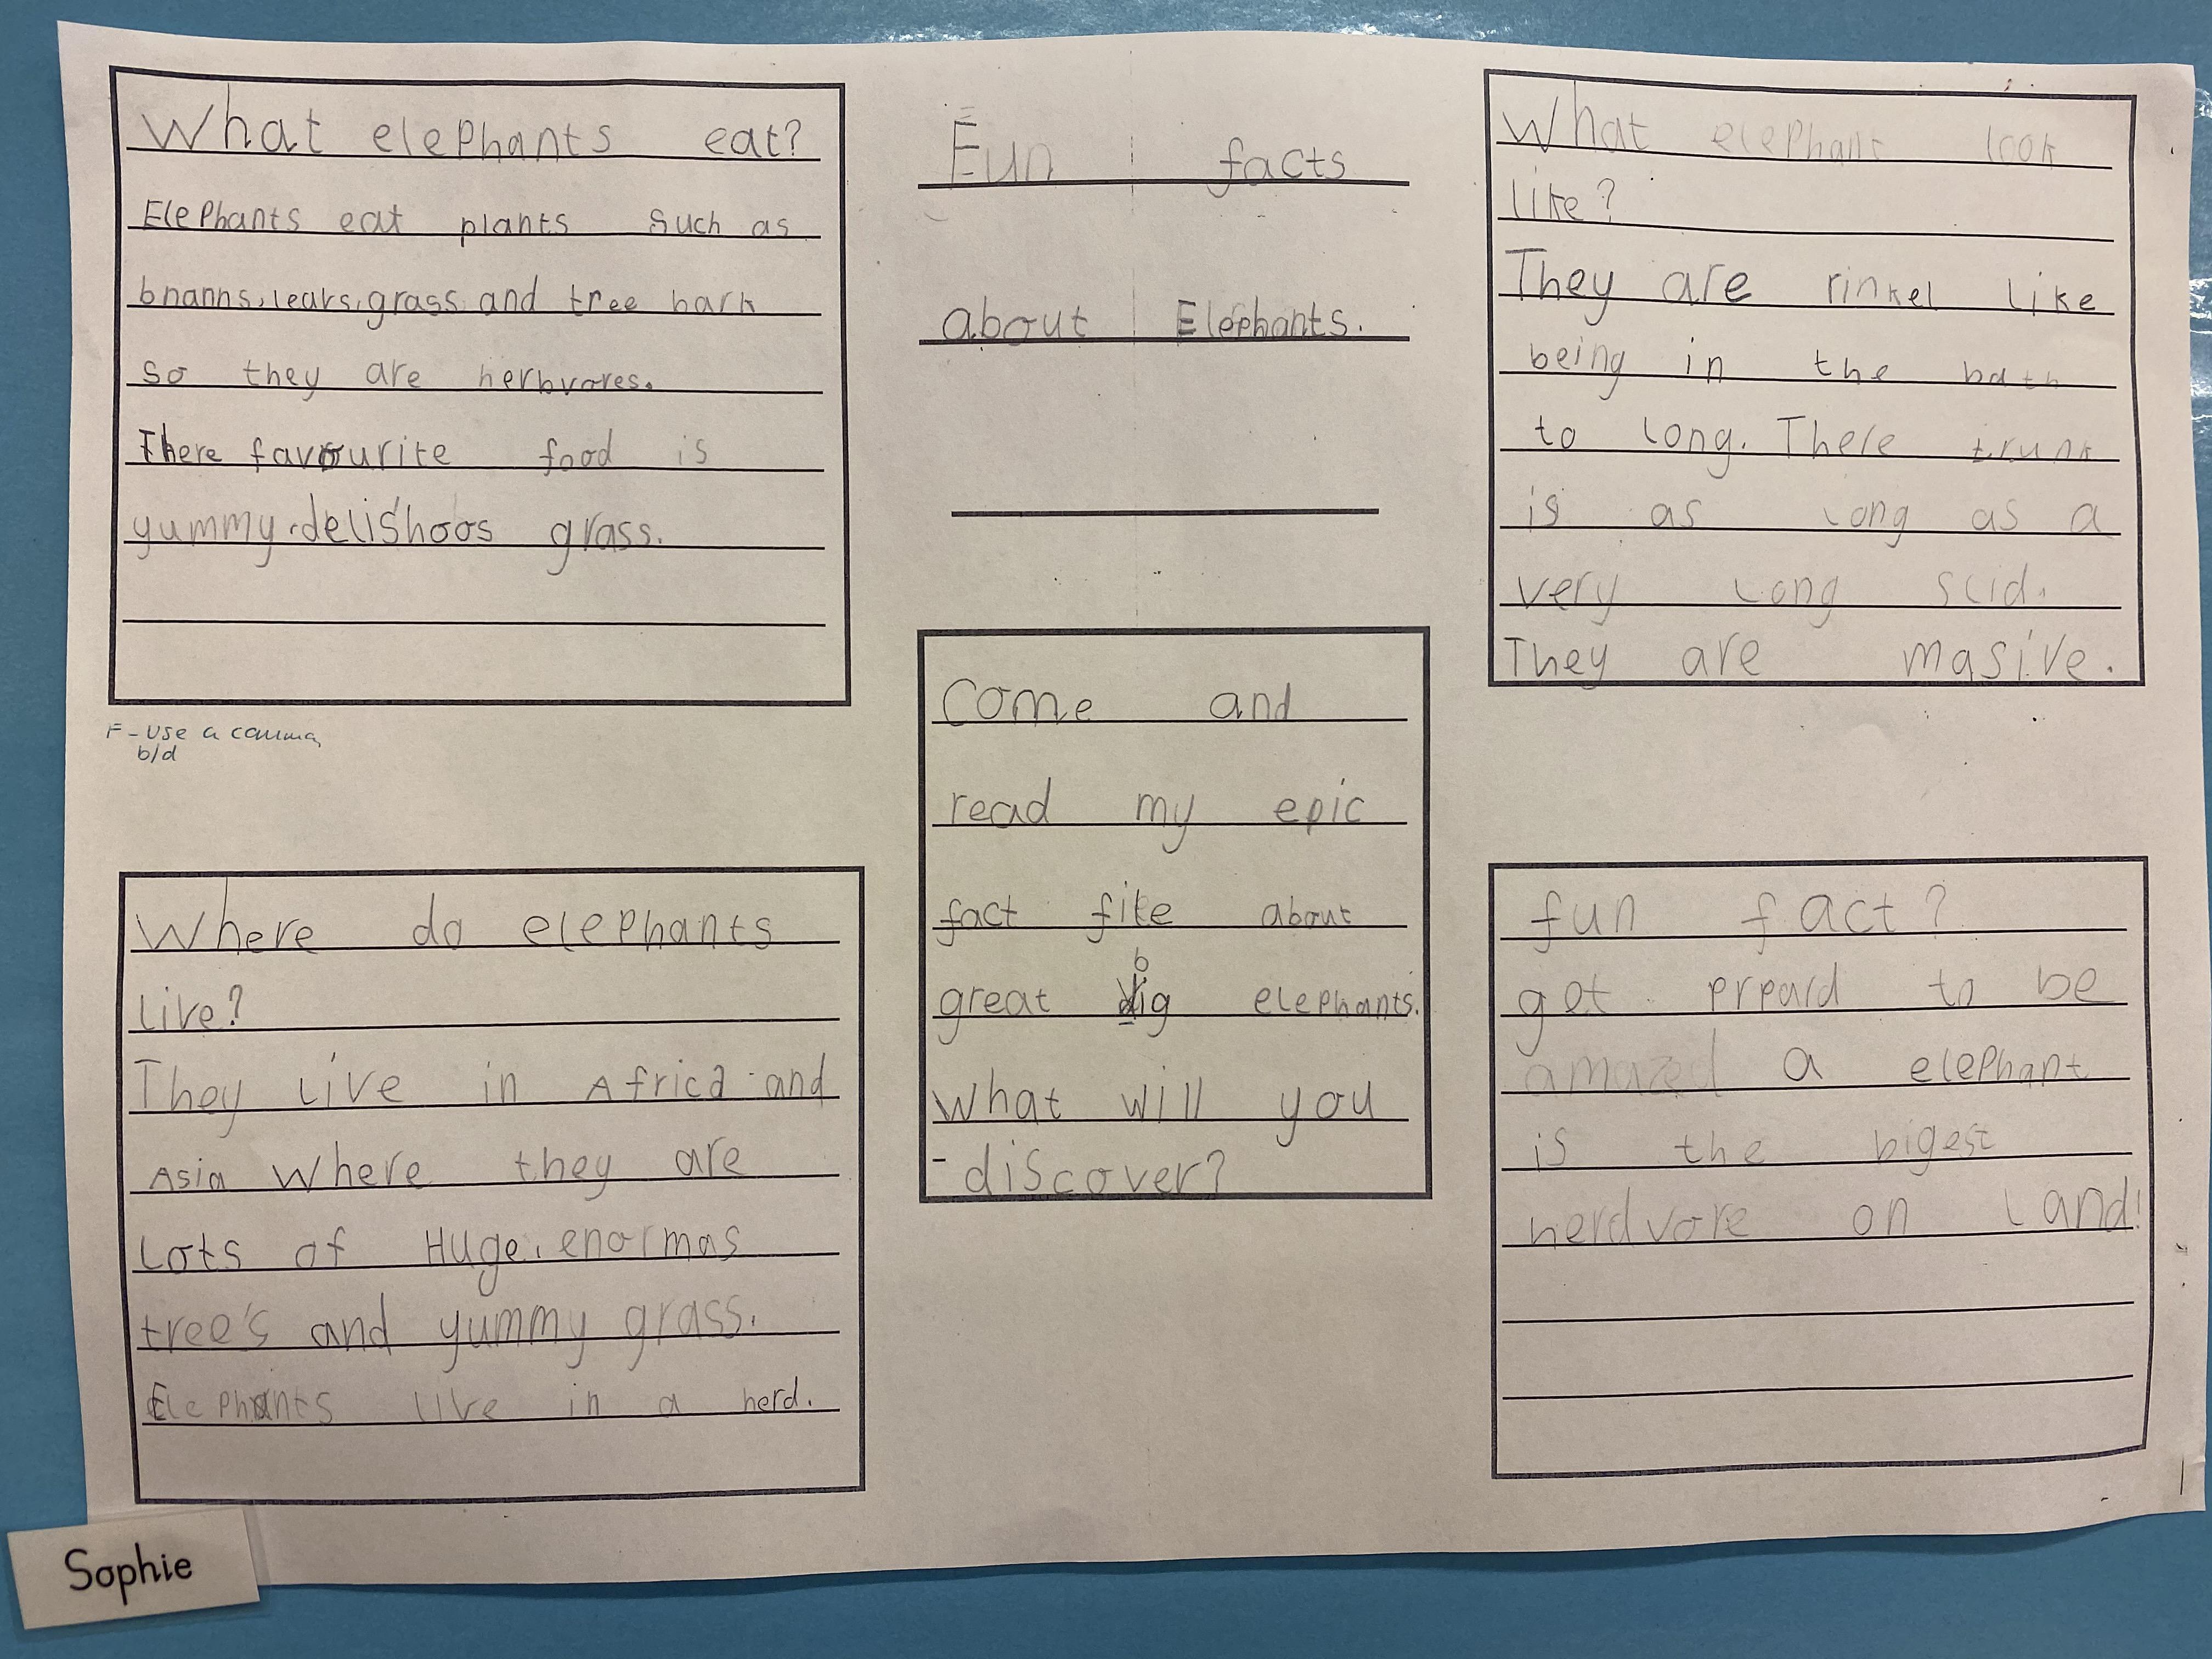 What elephants eat?
Elephants eat plants such as
bnanns, leavs, grass and tree bark
so they are herbvores.
There favourite food is
yummy, delishoos grass.
F - Use a comma,
b/d
Where do elephants
live?
They live in Africa and
Asia where they are
Lots of Huge, enormas
tree's and yummy grass.
Elephants live in a herd.
Sophie
Fun facts
about Elephants.
Come and
read my epic
fact file about
b
great big elephants.
What will you
discover?
What elephant look
like?
They are rinkel like
being in the bath
to long. There trunk
is as long as a
very long slid.
They are masive.
fun fact?
get prpard to be
amazed a elephant
is the bigest
herdvore on land!